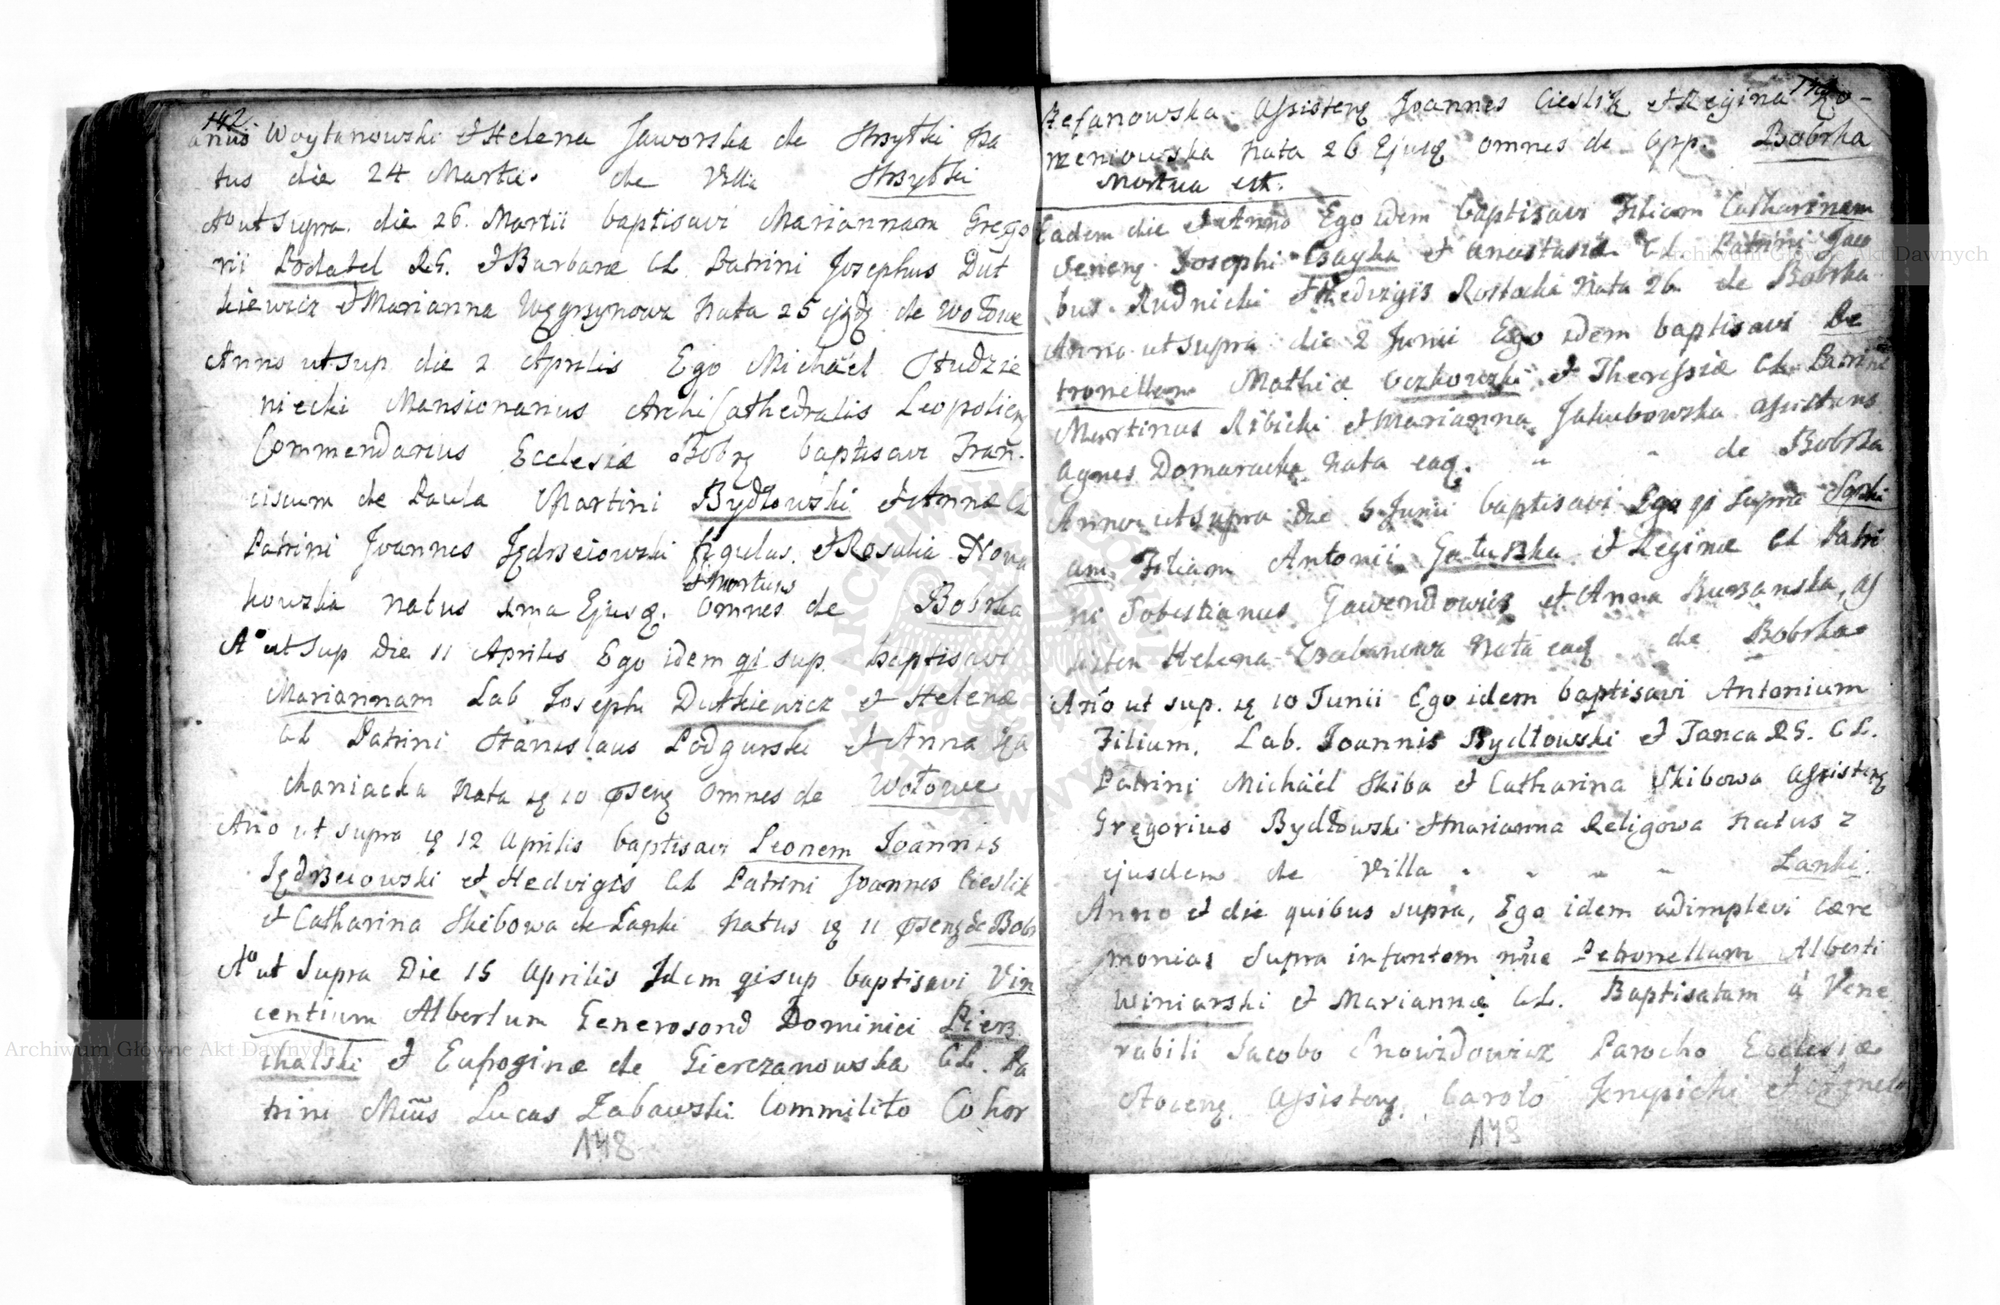 142
anus Woytanowski et Helena Jaworska de Strzyłki Na
tus die 24 Martii. de Villa Strzyłki
Ao ut Supra die 26. Martii baptisavi Mariannam Grego
rii Podatel RS. et Barbaræ CL Patrini Josephus Dut
kiewicz et Marianna Węgrzynowa Nata 25 de Wołowe
Anno ut sup die 2 Aprilis Ego Michaël Studzie
niecki Mansionarius Archi Cathedralis Leopolien
Commendarius Ecclesiæ Bobrę baptisavi Fran-
ciscum de Paula Martini Bydłowski et Annæ CL
Patrini Joannes Jędrzeiowski figulus et Rosalia Nowa
et Mortuus
kowska natus 1ma Ejusq. Omnes de Bobrka
Ao ut Sup Die 11 Aprilis Ego idem qi sup. baptisavi
Mariannam Lab Joseph Dutkiewicz et Helenæ
CL Patrini Stanislaus Podgurski et Anna Ka
chaniacka Nata 10 Omnes de Wołowe
Año ut Supra 12 Aprilis baptisavi Leonem Joannis
Jędrzeiowski et Hedvigis CL Patrini Joannes Cieslik
et Catharina Skibowa de Łanki Natus 11 de Bobr
Ao ut Supra Die 15 Aprilis Idem qi sup baptisavi Vin
centium Albertum Generosorū Dominici Pierz
chalski et Eufroginæ de Gierczanowska CL. Pa
trini Lucas Zabawski Commilito Cohor
148
Stefanowska Assisten Joannes Cieslik et Regina
mieniowska Nata 26 Ejusq omnes de opp. Bobrka
Mortua est.
Eadem die et Anno Ego idem baptisavi Filiam Catharinam
Josephi Czayka et Anastasiæ CL Patrini Jaco
bus Rudnicki et Hedvigis Rostocka Nata 26. de Bobrka
Anno ut Supra die 2 Junii Ego idem baptisavi Pe
tronellam Mathiæ et Theressiæ CL Patrini
Martinus Ribicki et Marianna Jakubowska assistens
Agnes Domaracka Nata eaq. " " de Bobrka
Anno ut Supra Die 5 Junii baptisavi Ego qi Supra
am Filiam Antonii Gałuszka et Reginæ CL Patri
ni Sobestianus Gawendowicz et Anna as
sisten Helena Nata eaq de Bobrka
Año ut sup. 10 Junii Ego idem baptisavi Antonium
Filium Lab. Joannis Bydłowski et RS. CL.
Patrini Michaël Skiba et Catharina Skibowa Assisten
Gregorius Bydłowski et Marianna Religowa Natus 2
ejusdem de Villa " " " " Łanki.
Anno et die quibus supra, Ego idem adimplevi cære
monias Supra infantem Petronellam Alberti
Winiarski et Mariannæ CL. Baptisatam á Vene
rabili Jacobo Parocho Ecclesiæ
Assisten Carolo et Agnete
148